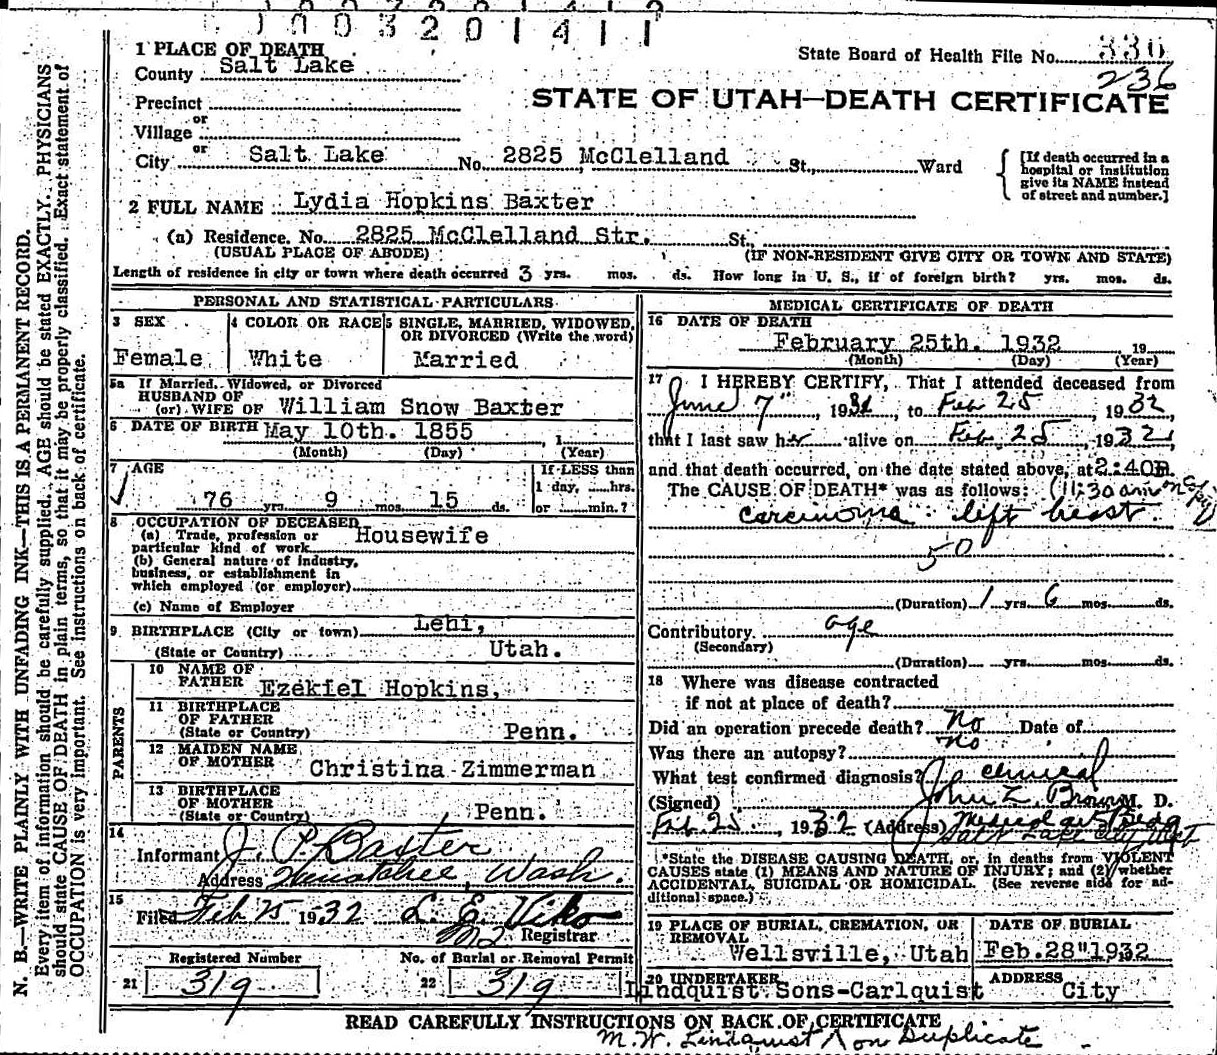 1003201411
1 PLACE OF DEATH
County Salt Lake
State Board of Health File No. 336
236
Precinct
or
Village
or
City Salt Lake No. 2825 McClelland St., Ward
STATE OF UTAH—DEATH CERTIFICATE
[If death occurred in a
hospital or institution
give its NAME instead
of street and number.]
2 FULL NAME Lydia Hopkins Baxter
(a) Residence. No. 2825 McClelland Str. St.,
(USUAL PLACE OF ABODE) (IF NON-RESIDENT GIVE CITY OR TOWN AND STATE)
Length of residence in city or town where death occurred 3 yrs. mos. ds. How long in U. S., if of foreign birth? yrs. mos. ds.
PERSONAL AND STATISTICAL PARTICULARS
3 SEX
Female
4 COLOR OR RACE
White
5 SINGLE, MARRIED, WIDOWED,
OR DIVORCED (Write the word)
Married
5a If Married, Widowed, or Divorced
HUSBAND OF
(or) WIFE OF William Snow Baxter
6 DATE OF BIRTH May 10th. 1855 , 1
(Month) (Day) (Year)
7 AGE
76 yrs. 9 mos. 15 ds.
If LESS than
1 day, hrs.
or min.?
8 OCCUPATION OF DECEASED
(a) Trade, profession or
particular kind of work Housewife
(b) General nature of industry,
business, or establishment in
which employed (or employer)
(c) Name of Employer
9 BIRTHPLACE (City or town) Lehi,
(State or Country) Utah.
PARENTS
10 NAME OF
FATHER Ezekiel Hopkins,
11 BIRTHPLACE
OF FATHER
(State or Country) Penn.
12 MAIDEN NAME
OF MOTHER Christina Zimmerman
13 BIRTHPLACE
OF MOTHER
(State or Country) Penn.
14
Informant J. P. Baxter
Address Wenatchee, Wash.
15
Filed Feb 25 1932 L. E. Viko
Registrar
Registered Number
21 319
No. of Burial or Removal Permit
22 319
MEDICAL CERTIFICATE OF DEATH
16 DATE OF DEATH
February 25th. 1932 19
(Month) (Day) (Year)
17 I HEREBY CERTIFY, That I attended deceased from
June 7", 1931, to Feb 25, 1932,
that I last saw her alive on Feb. 25, 1932,
and that death occurred, on the date stated above, at 2:40P.
The CAUSE OF DEATH* was as follows: (11:30am
carcinoma left breast.
50
(Duration) 1 yrs. 6 mos. ds.
Contributory age
(Secondary)
(Duration) yrs. mos. ds.
18 Where was disease contracted
if not at place of death?
Did an operation precede death? No Date of
Was there an autopsy? no
What test confirmed diagnosis? clinical
(Signed) John Z. Brown M. D.
Feb. 25, 1932 (Address) Medical Arts Bldg
Salt Lake City Utah
*State the DISEASE CAUSING DEATH, or, in deaths from VIOLENT
CAUSES state (1) MEANS AND NATURE OF INJURY; and (2) whether
ACCIDENTAL, SUICIDAL OR HOMICIDAL. (See reverse side for ad-
ditional space.)
19 PLACE OF BURIAL, CREMATION, OR
REMOVAL
Wellsville, Utah
DATE OF BURIAL
Feb. 28" 1932
20 UNDERTAKER
Lindquist Sons-Carlquist
ADDRESS
City
READ CAREFULLY INSTRUCTIONS ON BACK OF CERTIFICATE
M. W. Lindquist on Duplicate
N. B.—WRITE PLAINLY WITH UNFADING INK—THIS IS A PERMANENT RECORD.
Every item of information should be carefully supplied. AGE should be stated EXACTLY. PHYSICIANS
should state CAUSE OF DEATH in plain terms, so that it may be properly classified. Exact statement of
OCCUPATION is very important. See instructions on back of certificate.